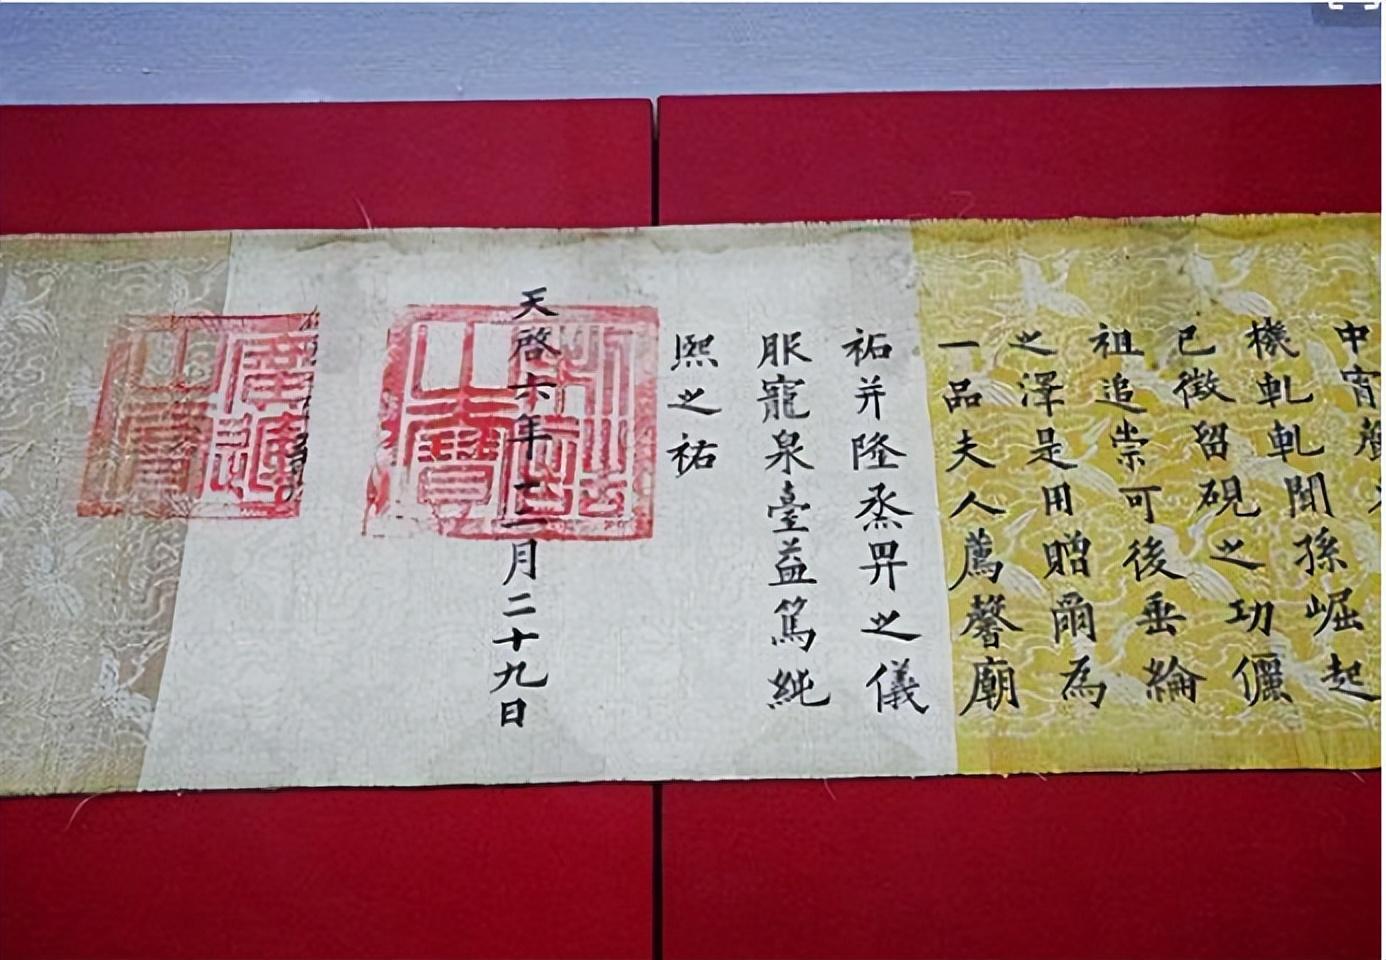 中宵
機軋軋聞孫崛起
已徵留硯之功儷
祖追崇可後垂綸
之澤是用贈爾為
一品夫人薦馨廟
祏并隆烝畀之儀
服寵泉臺益篤純
熙之祐
天啓六年十二月二十九日
制誥之寶
廣運之寶